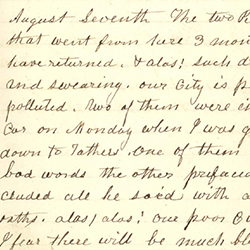 August Seventh The two R
that went from here 3 month
have returned. & alas! such d
and swearing. our City is p
polluted. two of them were in
Car on Monday when I was g
down to Fathers. one of them
bad words the other prefaced
cluded all he said with a
oaths. alas, alas! our poor C
I fear there will be much